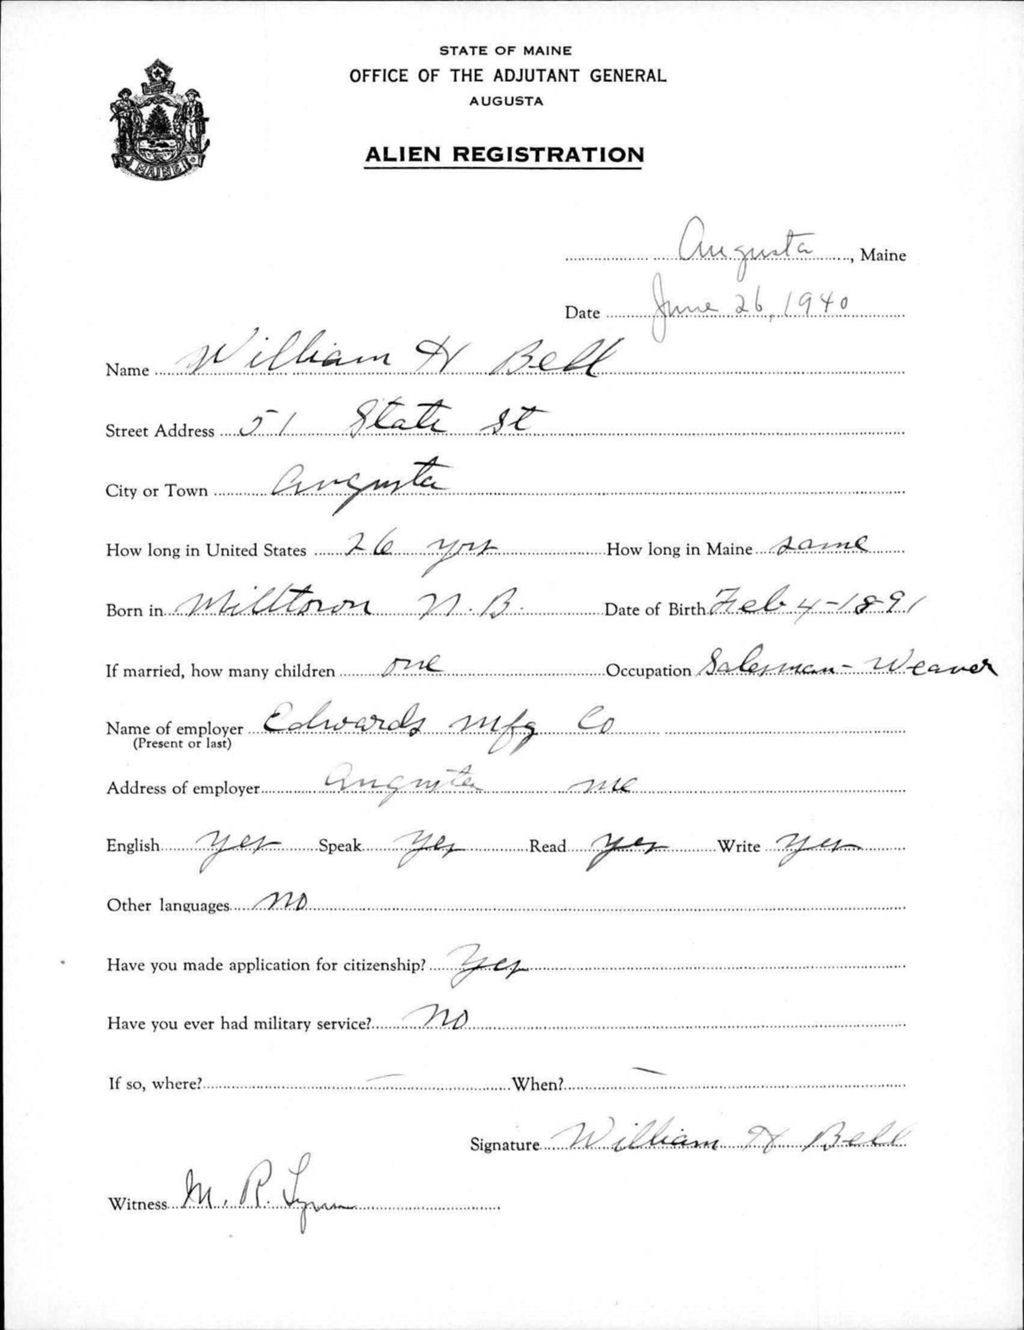 STATE OF MAINE
OFFICE OF THE ADJUTANT GENERAL
AUGUSTA
ALIEN REGISTRATION
MAINE
Augusta, Maine
Date June 26, 1940
Name William H Bell
Street Address 51 State St
City or Town Augusta
How long in United States 26 yrs How long in Maine same
Born in Milltown N.B. Date of Birth Feb 4-1891
If married, how many children one Occupation Salesman-Weaver
Name of employer Edwards Mfg Co
(Present or last)
Address of employer Augusta Me
English yes Speak yes Read yes Write yes
Other languages no
Have you made application for citizenship? Yes
Have you ever had military service? No
If so, where? — When? —
Signature William H Bell
Witness M. R. Lynn